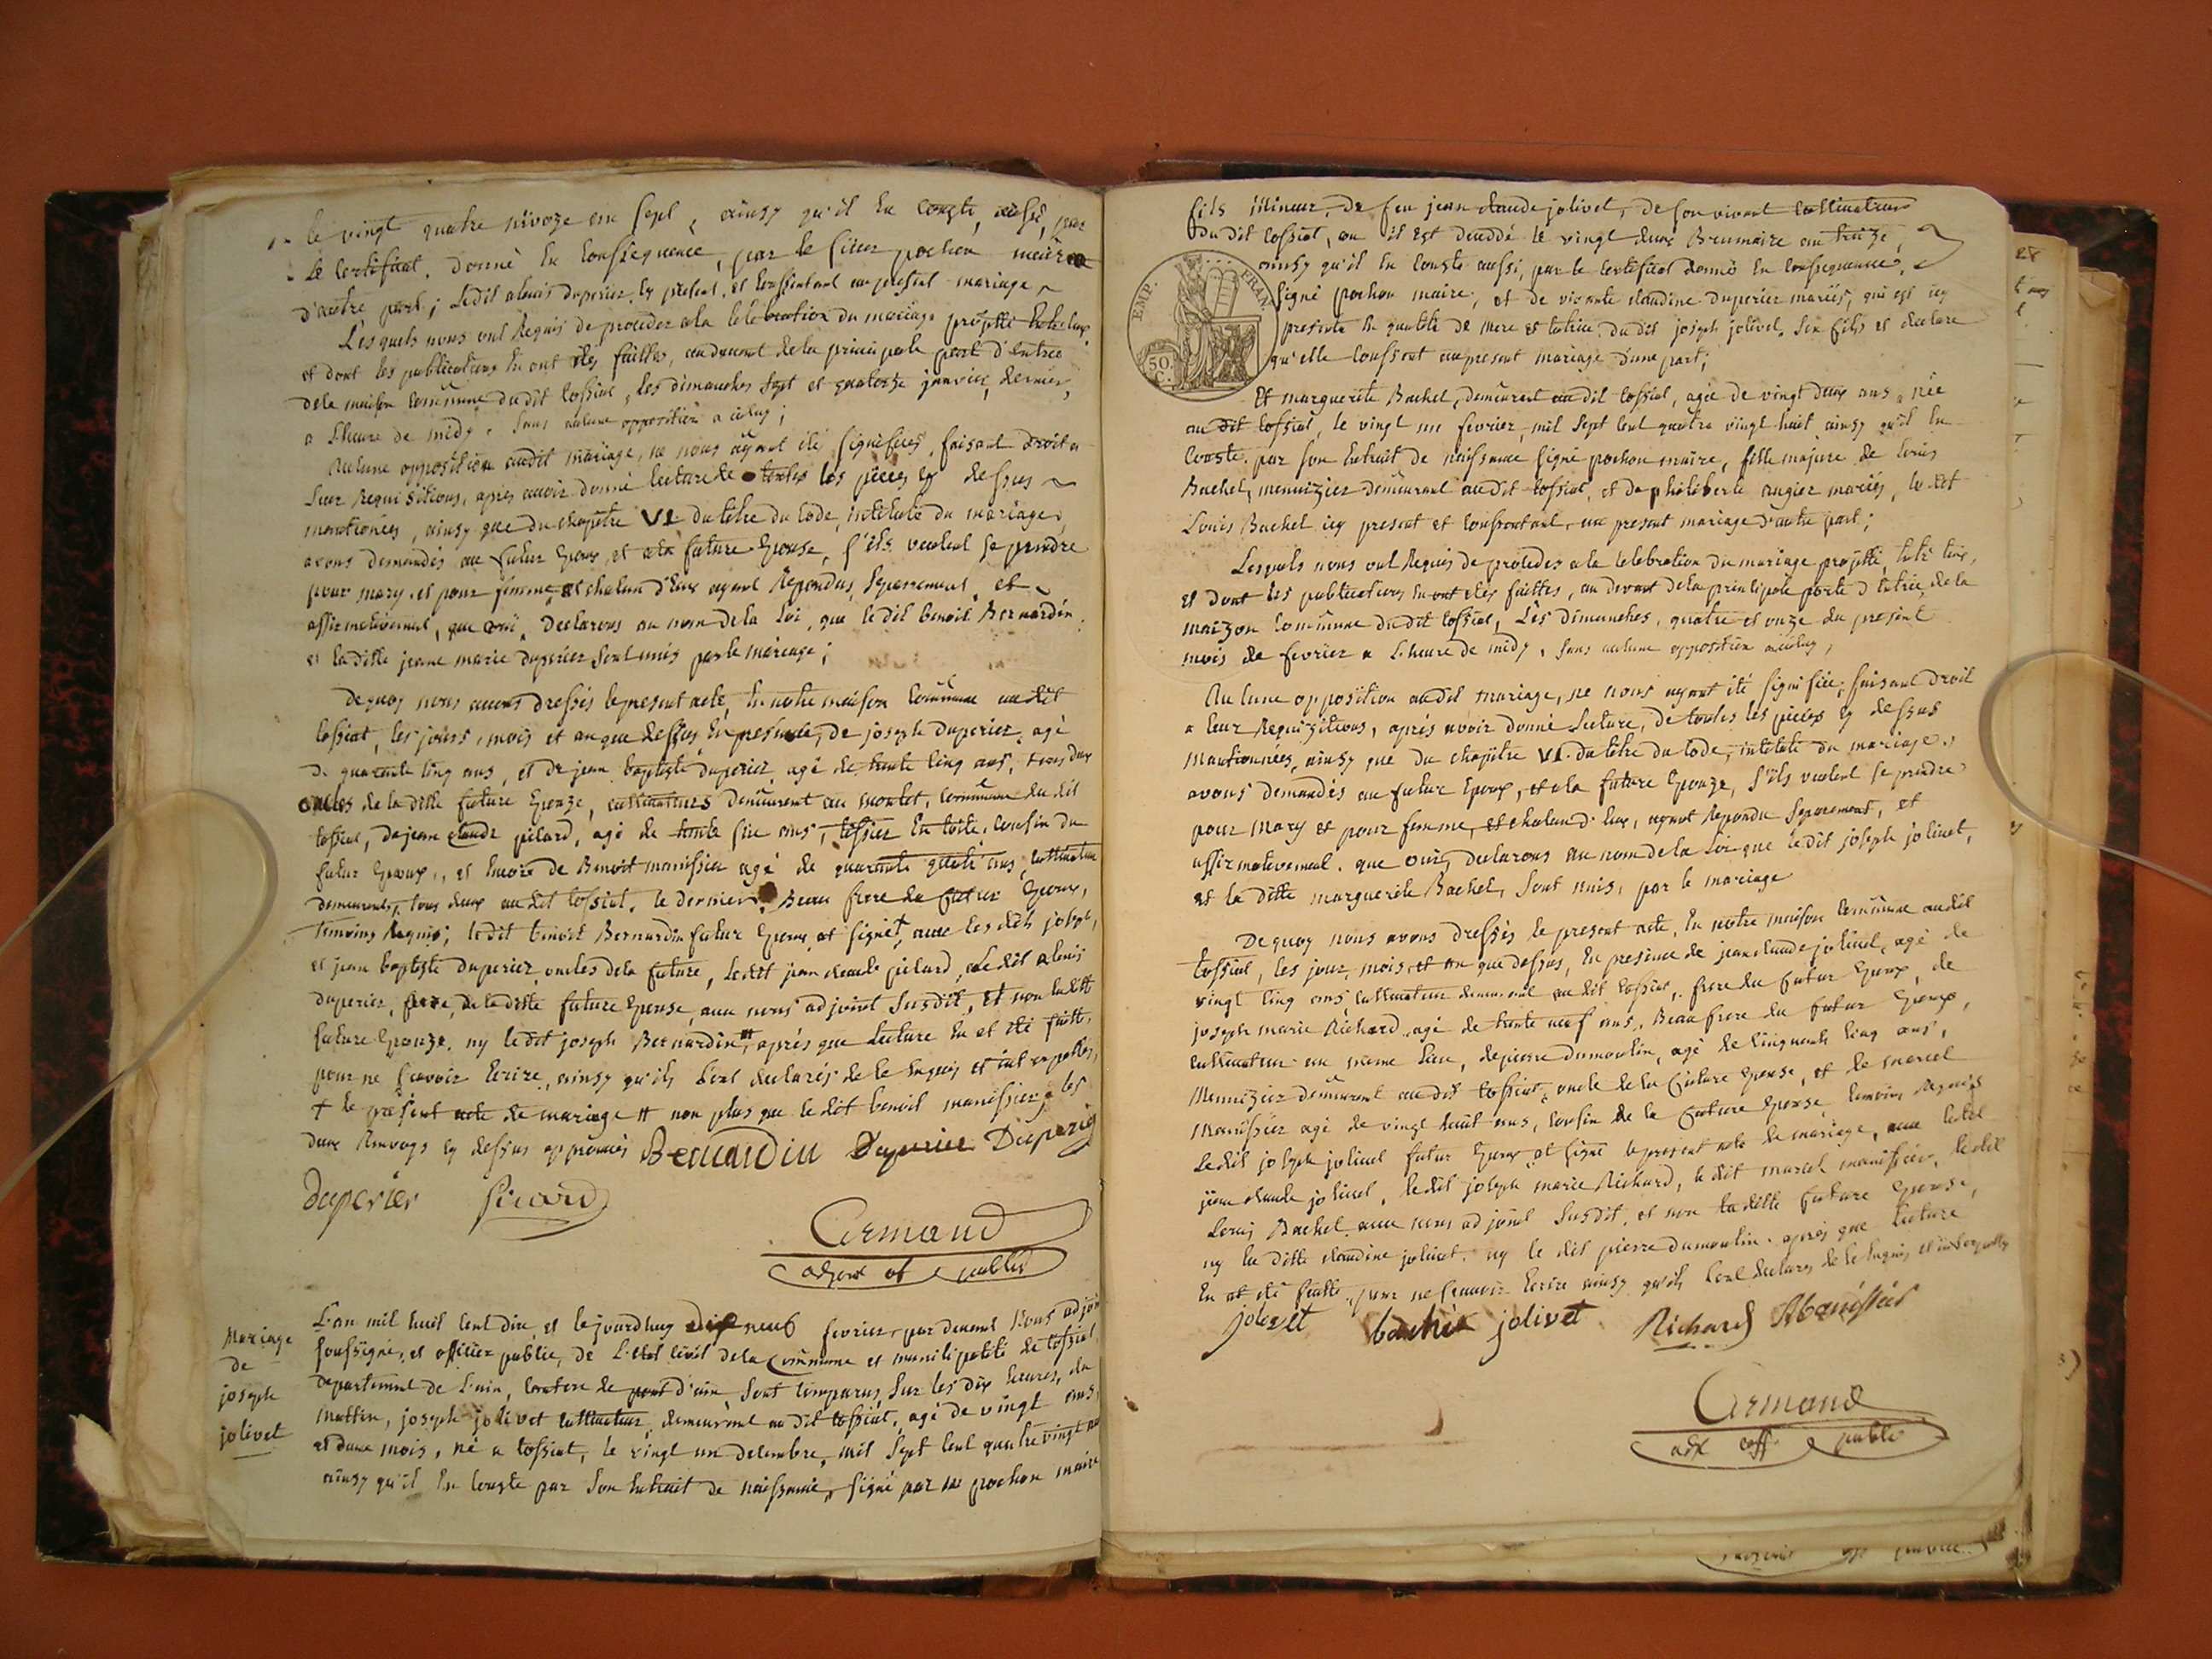 le vingt quatre nivoze an sept, ainsy qu'il en conste, aussi, par
le certificat. donné en conssequence, par le sieur pochon maire
d'autre part; ledit alexis duperier, icy present, et conssentant au present mariage
Lesquels nous ont Requis de proceder a la celebration du mariage projetté entr'eux,
et dont les publications en ont étés faittes, au devant de la principale porte d'entrée
de la maison commune dudit tossiat, les dimanches sept et quatorze janvier, dernier,
a L'heure de midy. Sans aulcune opposition a icelluy;
Aulcune opposition audit mariage, ne nous ayant été signifiées, faisant droit a
Leur Requisitions, apres avoir donné lecture de toutes les pieces cy dessus
mantionées, ainsy que du chapitre VI. du titre du code, intitulé du mariage,
avons demandés au futur Epoux, et a la future Epouse, s'ils veulent se prendre
pour mary et pour femme, et chalcun d'eux ayant Repondus, separement, et
affirmativement, que oui, Declarons au nom de la Loi, que le dit benoit Bernardin,
et la ditte jeanne marie duperier sont unis par le mariage;
De quoy nous avons dressés le present acte, en notre maison commune audit
tossiat, les jours, mois et an que dessus, En presence, de joseph duperier, agé
de quarante cinq ans, et de jean baptiste duperier agé de trente cinq ans, tous deux
oncles de la ditte future Epouze, cultivateurs demeurant au montet, commune du dit
tossiat, de jean claude picard, agé de trente six ans, tissier en toile, cousin du
futur Epoux, et encore de Benoit manissier agé de quarante quatre ans, cultivateur
demeurants, tous deux audit tossiat, le dernier, Beau frere du futur Epoux,
Temoins Requis; ledit benoit Bernardin futur Epoux, at signé†, avec les dits joseph,
et jean baptiste duperier, oncles de la future, Ledit jean claude picard, Ledit alexis
duperier, pere, de la ditte future Epouse, avec nous adjoint susdit, Et non laditte
future Epouze, ny ledit joseph Bernardin††, après que Lecture en at été faitte,
pour ne sçavoir Ecrire, ainsy qu'ils L'ont declarés de ce enquis et interpellés,
† le present acte de mariage †† non plus que le dit benoit manissier, les
deux Renvoys cy dessus approuvés Bernardin Duperier Duperier
Duperier picard
Armand
adjoint of public
Mariage
de
joseph
jolivet
L'an mil huit cent dix, et le jourdhuy dix neuf fevrier, par devant Nous adjoint
soussigné, et officier public, de L'etat civil de la Commune et municipalité de tossiat,
departement de L'ain, canton de pont d'ain, sont comparus, sur les dix heures, du
mattin, joseph jolivet cultivateur, demeurant au dit tossiat, agé de vingt ans,
et deux mois, né a tossiat, le vingt un decembre, mil sept cent quatre vingt
ainsy qu'il en conste par son Extrait de naissance, signé par pochon maire
fils mineur, de feu jean claude jolivet, de son vivant cultivateur
du dit tossiat, ou il est decedé le vingt deux Brumaire an treize,
ainsy qu'il en conste aussi, par le certificat donné en conssequence,
signé pochon maire, et de vivante claudine duperier mariés, qui est icy
presente en qualité de mere et tutrice dudit joseph jolivet, son fils et declare
qu'elle conssent au present mariage d'une part;
EMP. FRAN.
50 C.
Et marguerite Bachel, demeurant au dit tossiat, agée de vingt deux ans, née
au dit tossiat, le vingt un fevrier, mil sept cent quatre vingt huit ainsy qu'il en
Conste par son Extrait de naissance signé pochon maire, fille majure de Louis
Bachel, menuizier demeurant audit tossiat, et de philiberte augier mariés, ledit
Louis Bachel icy present et conssentant, au present mariage d'autre part;
Lesquels nous ont Requis de proceder a la celebration du mariage projetté entr'eux,
et dont les publications en ont étés faittes, au devant de la principale porte d'entrée, de la
maizon commune du dit tossiat, Les dimanches, quatre et onze du present
mois de fevrier a L'heure de midy, sans aulcune opposition a icelluy,
Aulcune opposition audit mariage, ne nous ayant été signifiée, faisant droit
a leur Requizitions, aprés avoir donné Lecture, de toutes les pieces cy dessus
mantionnées, ainsy que du chapitre VI. du titre du code, intitulé du mariage,
avons demandés au futur Epoux, et a la future Epouze, s'ils veulent se prendre
pour mary et pour femme, et chalcun d'eux, ayant Repondu separement, et
affirmativement, que oui, declarons au nom de la Loi que ledit joseph jolivet,
et la ditte marguerite Bachel, sont unis, par le mariage
De quoy nous avons dressés le present acte, En notre maison commune audit
tossiat, les jour, mois et an que dessus, En presence de jean claude jolivet, agé de
vingt cinq ans cultivateur demeurant audit tossiat, frere du futur Epoux, de
joseph marie Richard, agé de trente neuf ans, Beau frere du futur Epoux,
cultivateur au meme lieu, de pierre dumoulin, agé de cinquante cinq ans,
Menuizier demeurant audit tossiat, oncle de la future Epouse, et de marcel
Manissier agé de vingt huit ans, cousin de la future Epouse, temoins Requis
Ledit joseph jolivet futur Epoux, at signé le present acte de mariage, avec ledit
jean claude jolivet, ledit joseph marie Richard, le dit marcel manissier, ledit
Louis Bachel avec nous adjoint susdit, et non laditte future Epouse,
ny la ditte claudine jolivet, ny le dit pierre dumoulin. aprés que Lecture
En at été faitte, pour ne sçavoir Ecrire ainsy qu'ils L'ont declarés de ce Enquis et interpellés
jolivet bachel jolivet Richard Manissier
Armand
adt off public
28